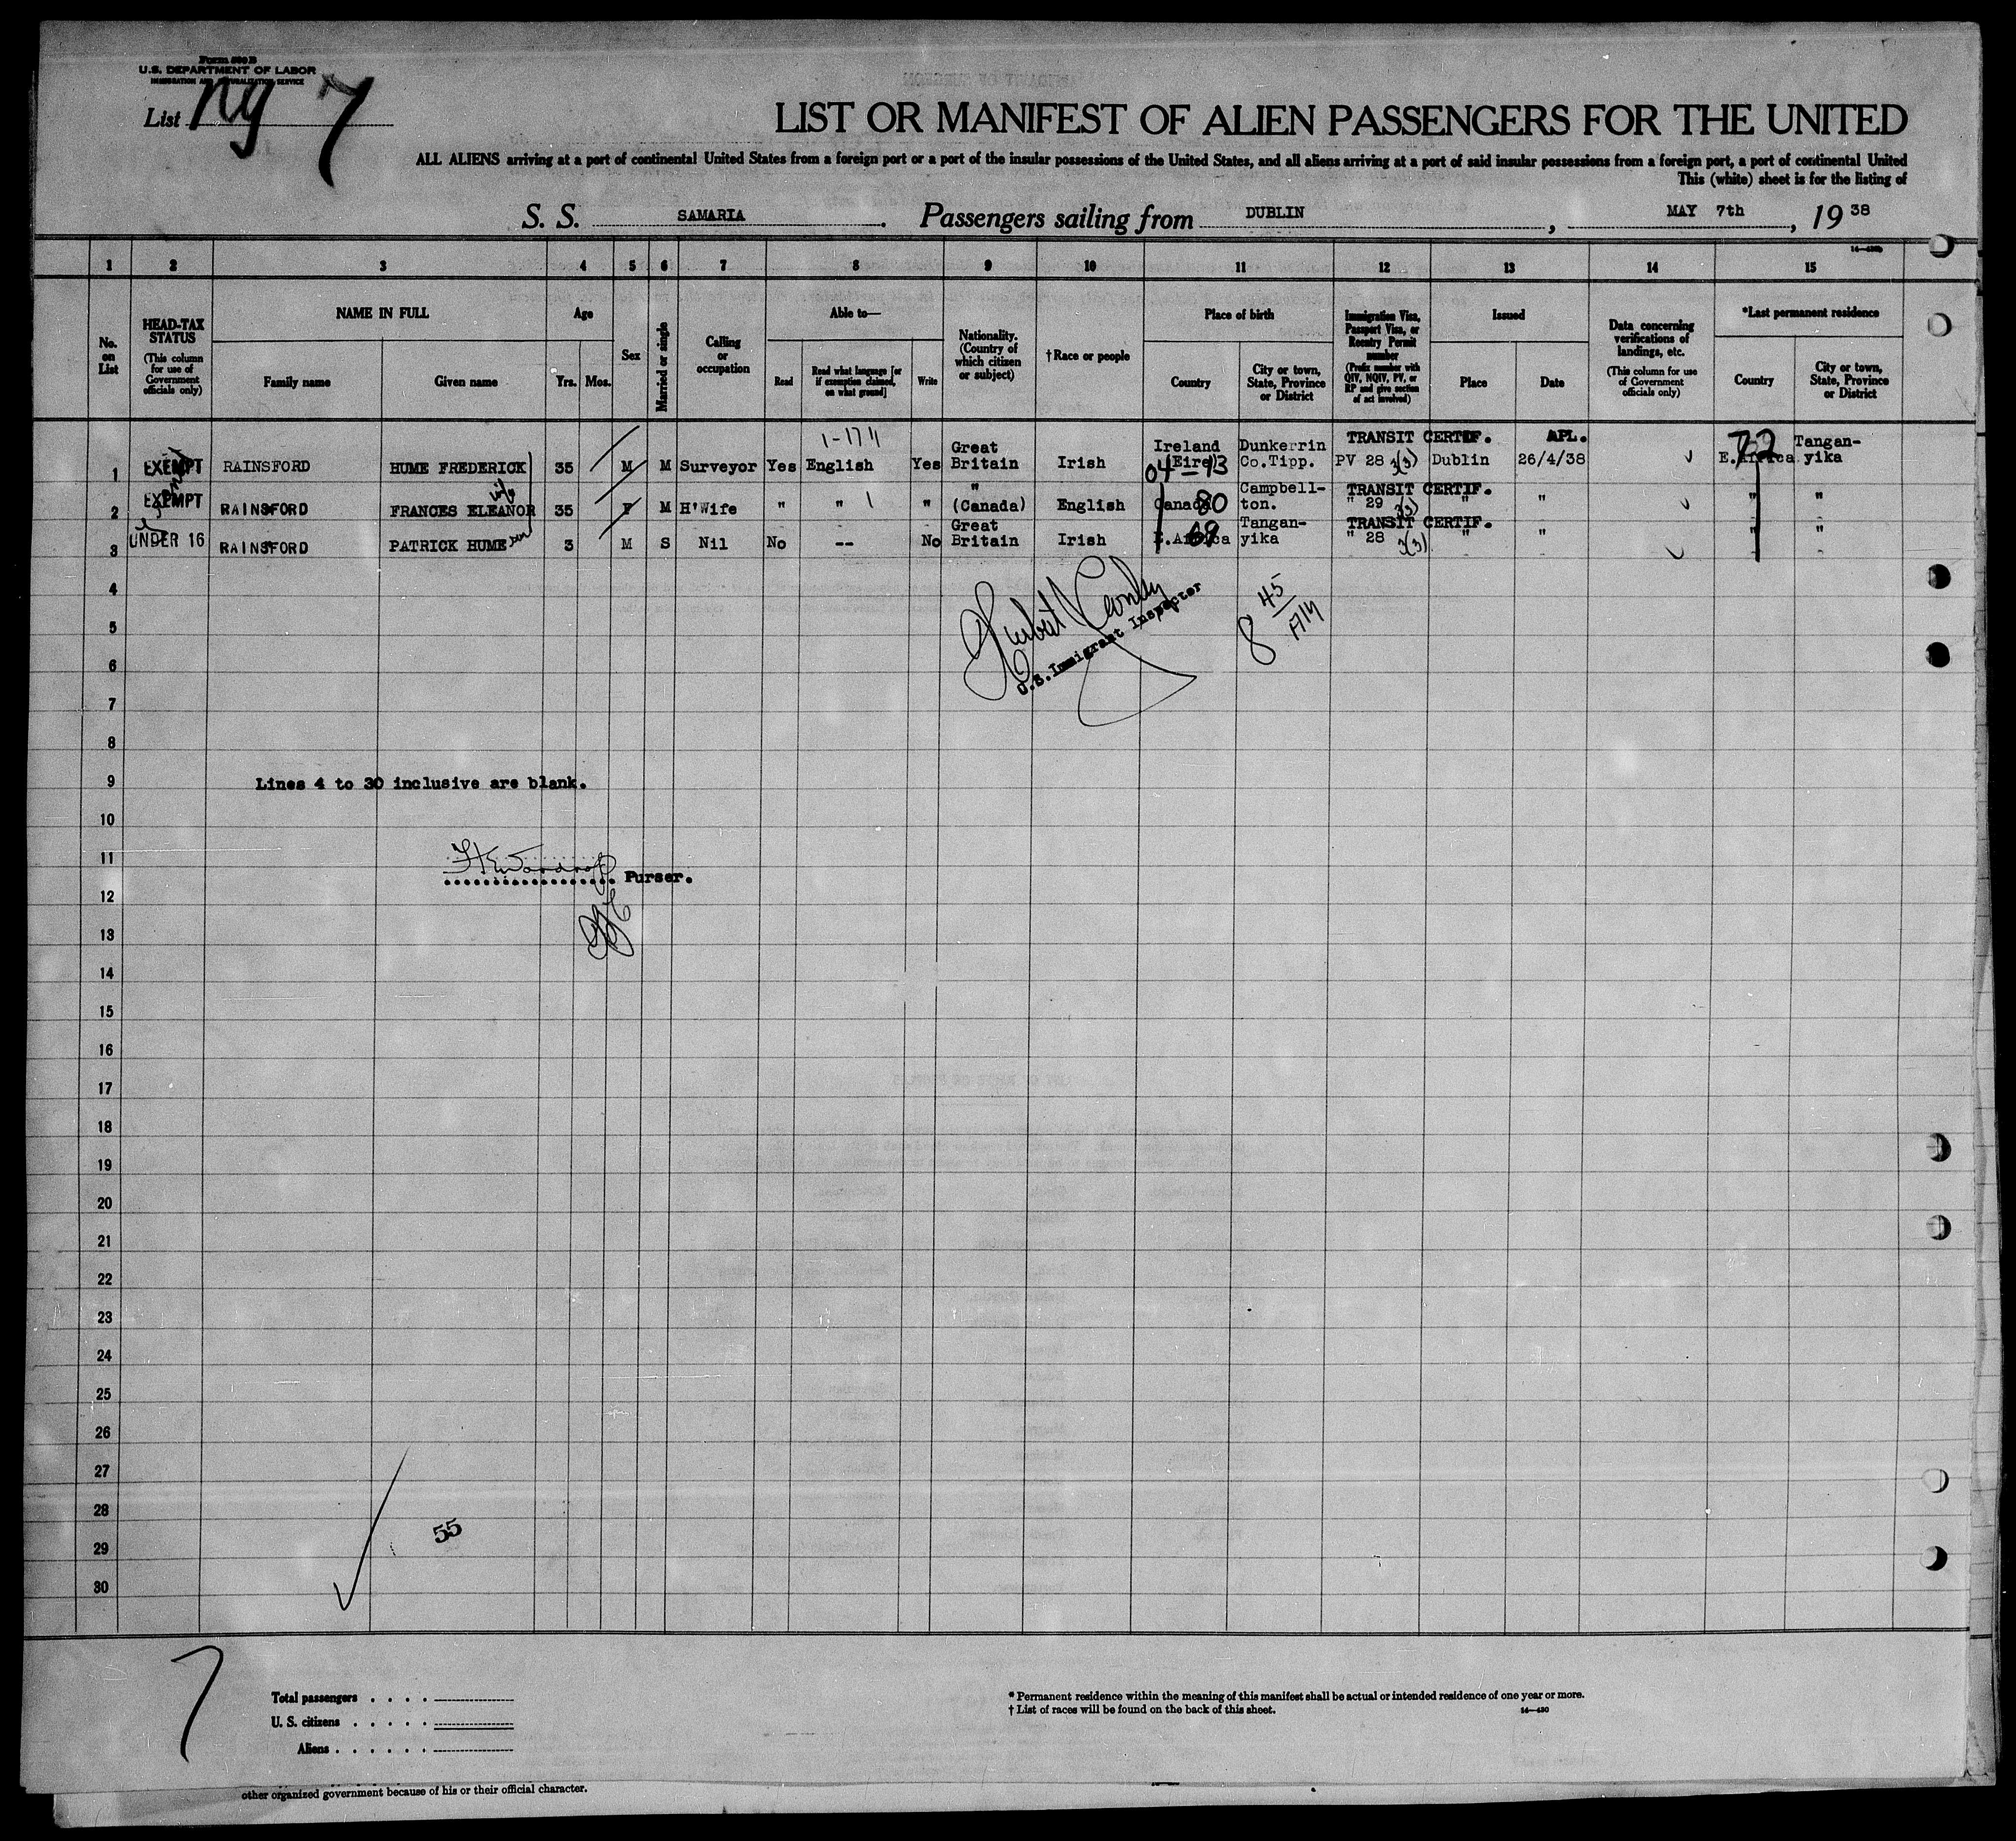 Form 500 B
U.S. DEPARTMENT OF LABOR
IMMIGRATION AND NATURALIZATION SERVICE
List ng 7
LIST OR MANIFEST OF ALIEN PASSENGERS FOR THE UNITED
ALL ALIENS arriving at a port of continental United States from a foreign port or a port of the insular possessions of the United States, and all aliens arriving at a port of said insular possessions from a foreign port, a port of continental United
This (white) sheet is for the listing of
S. S. SAMARIA. Passengers sailing from DUBLIN, MAY 7th, 1938
1 2 3 4 5 6 7 8 9 10 11 12 13 14 15
No. on List
HEAD-TAX STATUS (This column for use of Government officials only)
NAME IN FULL
Family name
Given name
Age
Yrs. Mos.
Sex
Married or single
Calling or occupation
Able to—
Read
Read what language [or if exemption claimed, on what ground]
Write
Nationality. (Country of which citizen or subject)
†Race or people
Place of birth
Country
City or town, State, Province or District
Immigration Visa, Passport Visa, or Reentry Permit number (Prefix number with QIV, NQIV, PV, or RP and give section of act involved)
Issued
Place
Date
Data concerning verifications of landings, etc. (This column for use of Government officials only)
*Last permanent residence
Country
City or town, State, Province or District
1-17
Great Ireland Dunkerrin TRANSIT CERTIF. APL. 72 Tangan-
1 EXEMPT RAINSFORD HUME FREDERICK 35 M M Surveyor Yes English Yes Britain Irish (Eire) Co.Tipp. PV 28 3(3) Dublin 26/4/38 E.Africa yika
04-13
" Campbell- TRANSIT CERTIF.
2 EXEMPT RAINSFORD FRANCES ELEANOR wife 35 F M H'Wife " " " (Canada) English Canada 80 ton. " 29 3(3) " " " "
Great Tangan- TRANSIT CERTIF.
3 UNDER 16 RAINSFORD PATRICK HUME son 3 M S Nil No -- No Britain Irish E.Africa 69 yika " 28 3(3) " " " "
4
5
6
U.S. Immigrant Inspector
8 45 AM
7
8
9 Lines 4 to 30 inclusive are blank.
10
11
Purser.
12
13
14
15
16
17
18
19
20
21
22
23
24
25
26
27
28
55
29
30
7
Total passengers . . . .
U. S. citizens . . . . .
Aliens . . . . . .
* Permanent residence within the meaning of this manifest shall be actual or intended residence of one year or more.
† List of races will be found on the back of this sheet.
14—430
other organized government because of his or their official character.